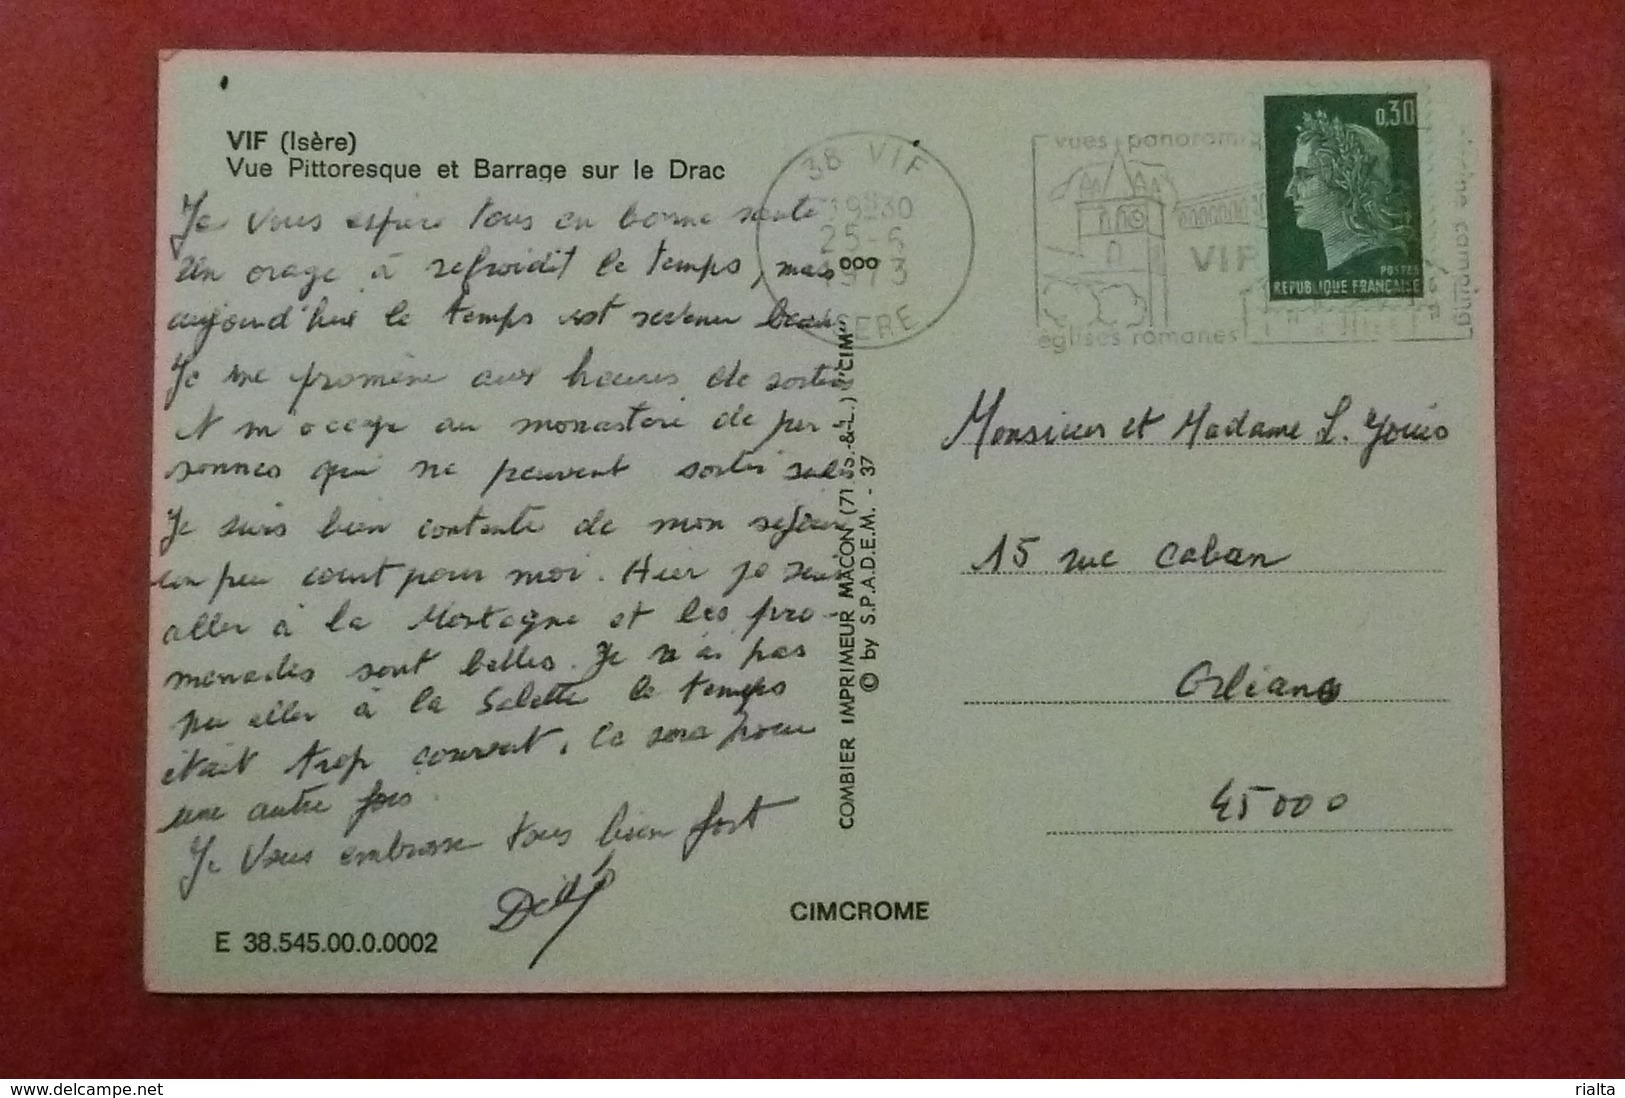 VIF (Isère)
Vue Pittoresque et Barrage sur le Drac
Je vous espère tous en bonne sante
Un orage à refroidit le temps, mais
aujourd'hui le temps est revenu beau
Je me promène aux heures de sortie
et m'occupe au monastère de per-
sonnes qui ne peuvent sortir seules
Je suis bien contente de mon séjour
un peu court pour moi. Hier je suis
aller à la Mortagne et les pro-
menades sont belles. Je n'ai pas
pu aller à la Salette le temps
était trop couvert. Ce sera pour
une autre fois.
Je vous embrasse tous bien fort
E 38.545.00.0.0002
COMBIER IMPRIMEUR MACON (71 S.-&-L.) "CIM"
© by S.P.A.D.E.M. - 37
CIMCROME
38 VIF
19H30
25-6
1973
ISERE
vues panoramiq
VIF
églises romanes
piscine camping
0,30
POSTES
REPUBLIQUE FRANÇAISE
Monsieur et Madame L.
15 rue Caban
Orléans
45000
www.delcampe.net
rialta